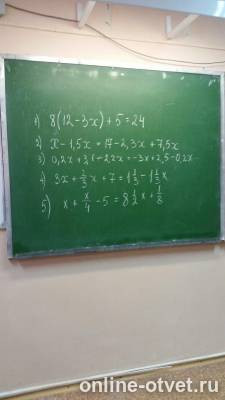 1) 8(12-3x)+5=24
2) x-1,5x=17-2,3x+7,5x
3) 0,2x+ -2,2x=-3x+2,5-0,2x
4) 3x+2/3x+7=1 1/3-1 1/3x
5) x+x/4-5=8 1/2x+1/8
online-otvet.ru